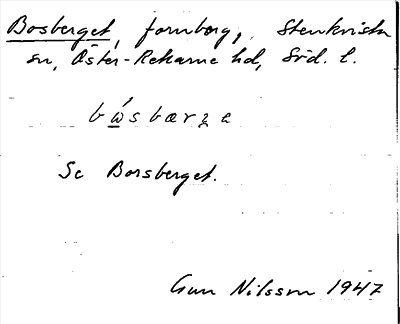 Bosberget, fornborg, Stenkvista
sn, Öster-Rekarne hd, Söd. l.
bẃsbærʒe
Se Borsberget.
Gun Nilsson 1947